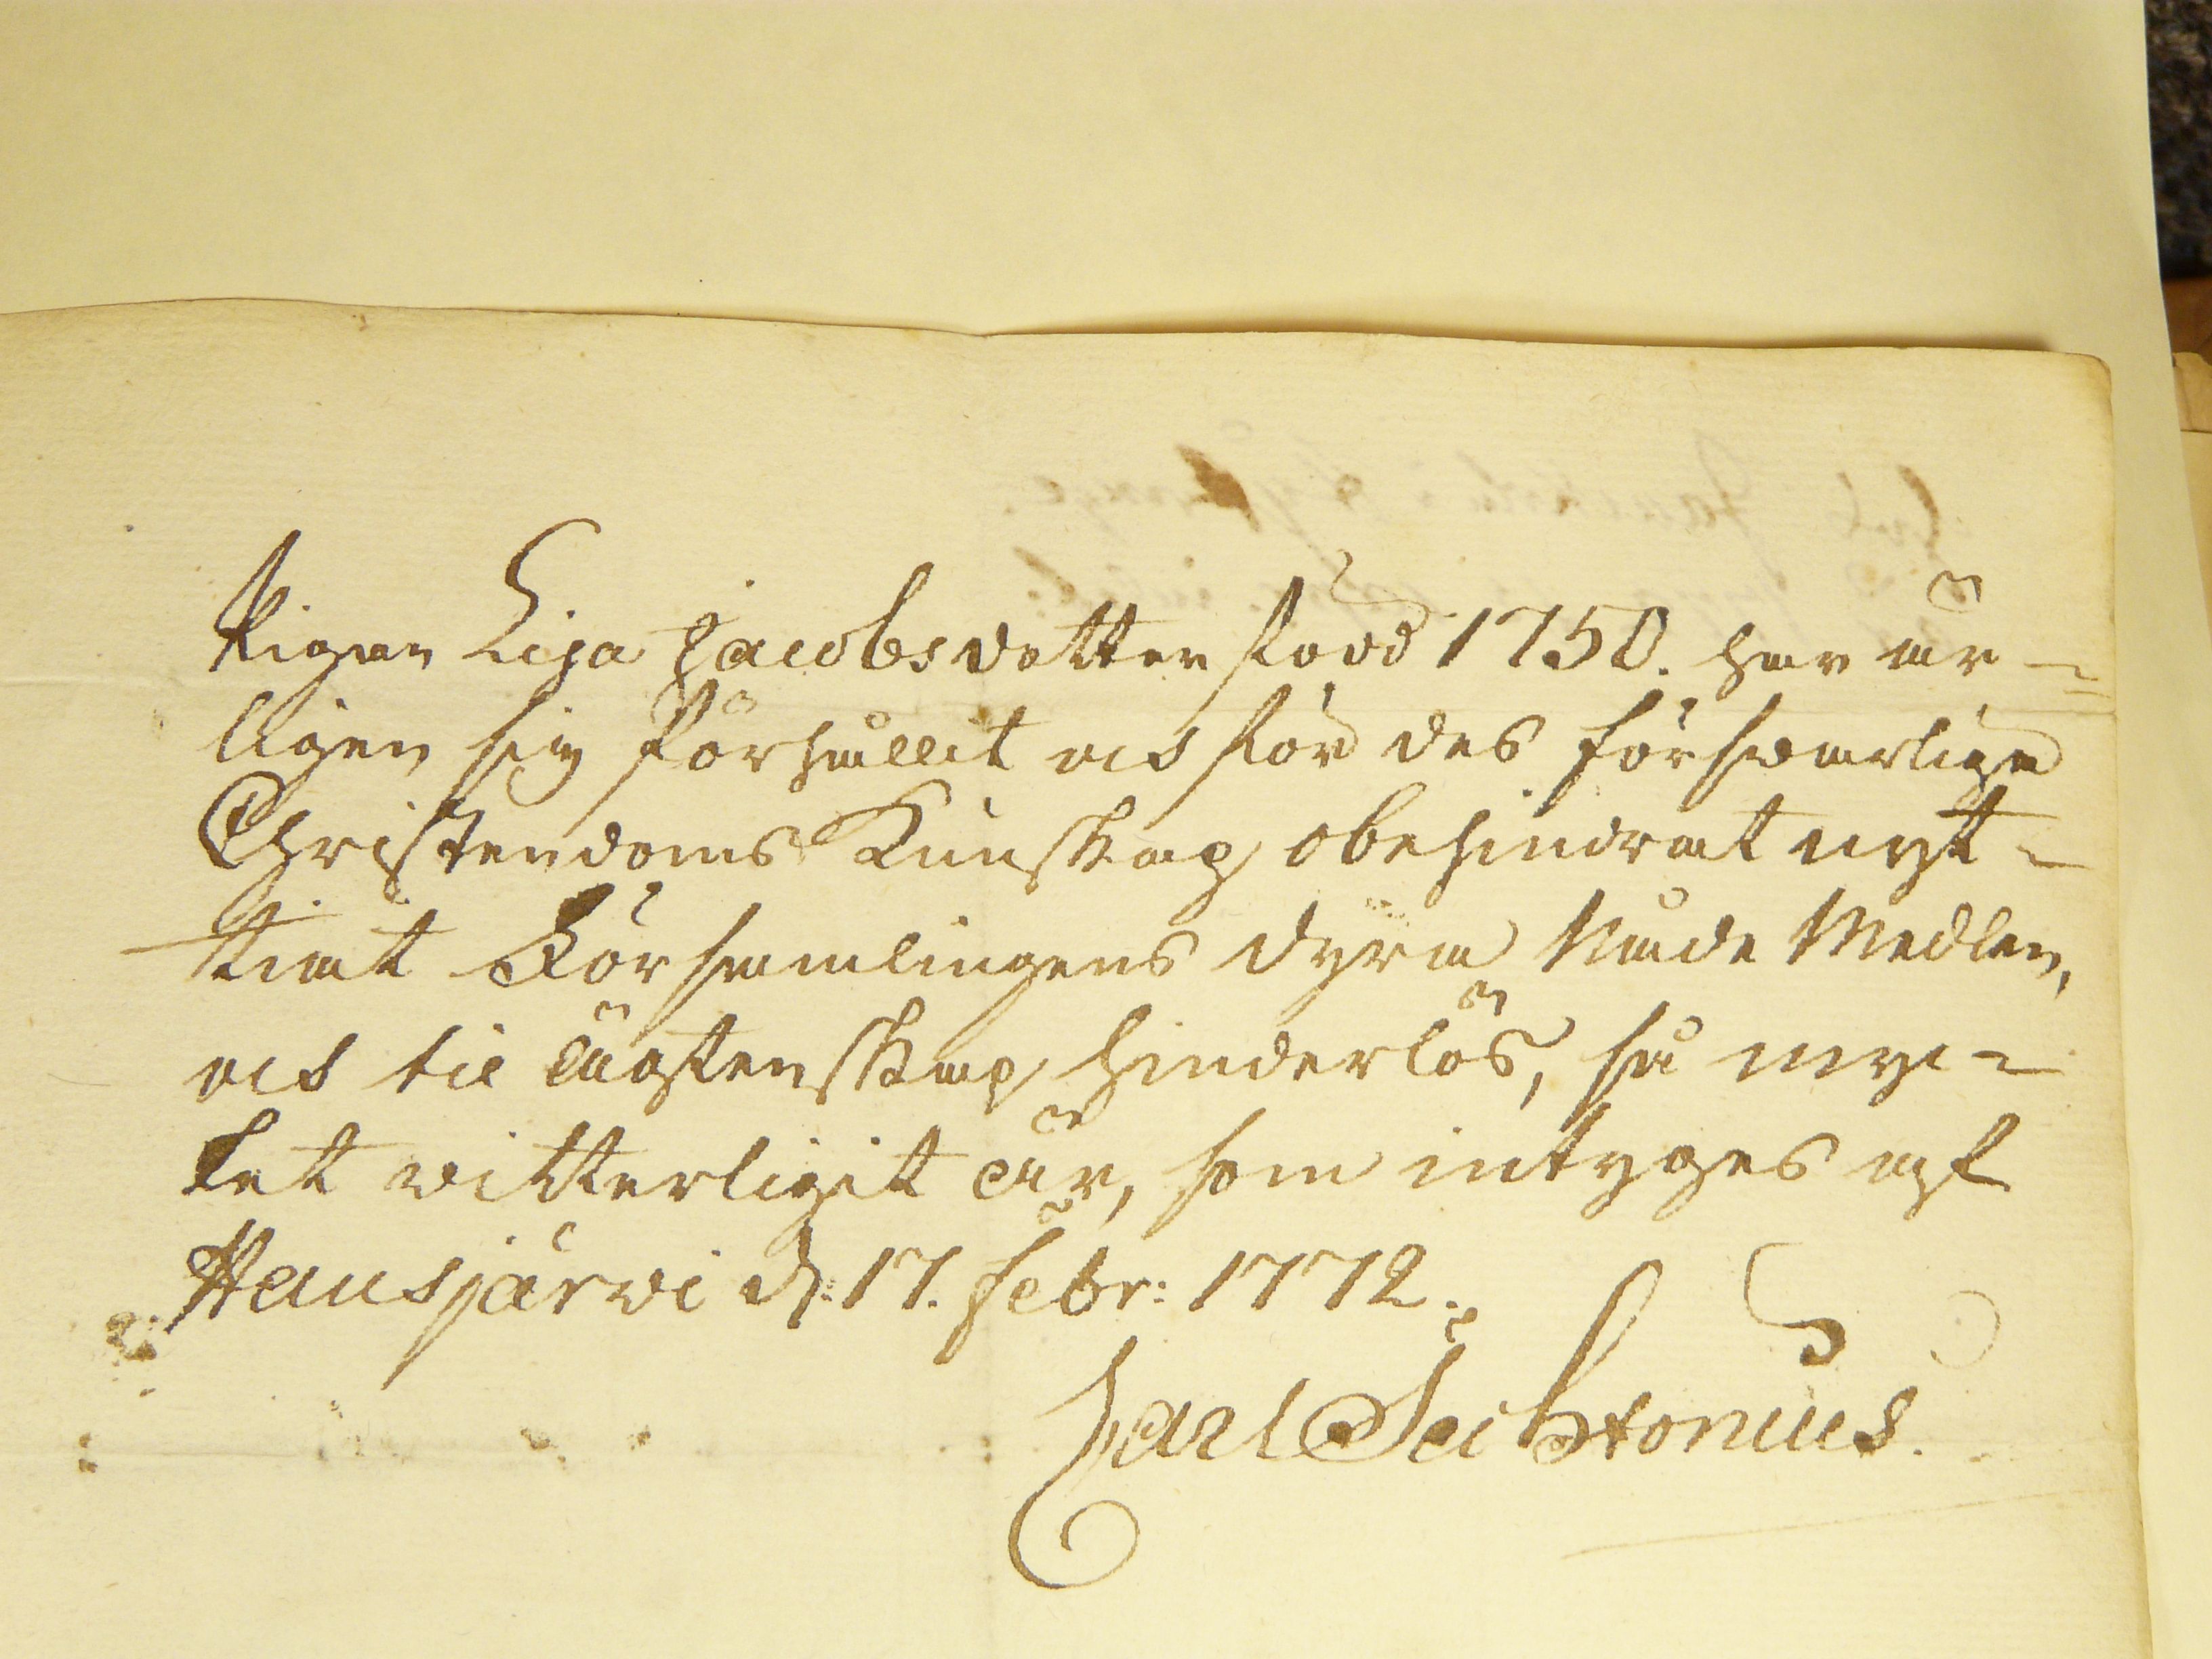 Pigan Lisa Jacobsdotter född 1750. har är-
ligen sig förhållit och för des försvarliga
Christendoms Kunskap obehindrat nyt-
tiat Församlingens dyra Nåde Medlen,
och til ächtenskap hinderlös, så myc-
ket witterligit är, som intyges af
Hausjärvi d. 17. Febr: 1772.
Carl